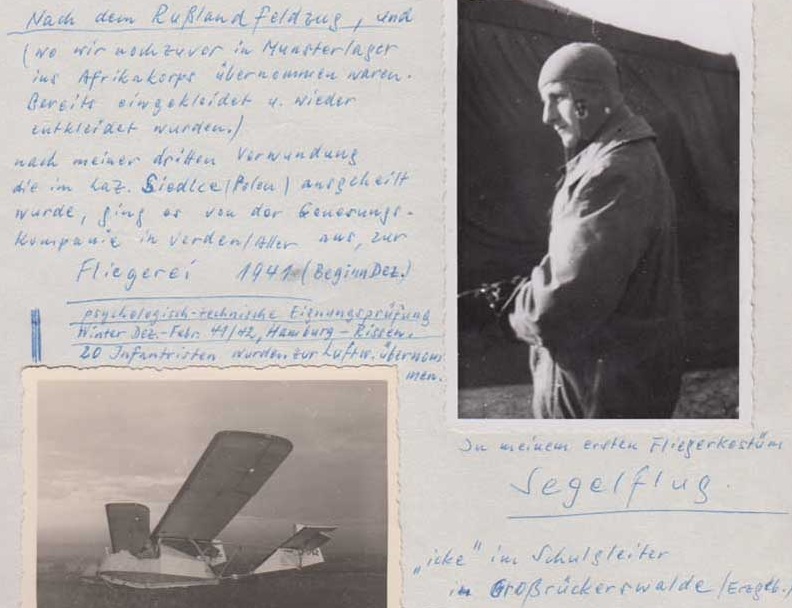 Nach dem Rußlandfeldzug, und
(wo wir noch zuvor in Munsterlager
ins Afrikakorps übernommen waren.
Bereits eingekleidet u. wieder
entkleidet wurden.)
nach meiner dritten Verwundung
die im Laz. Siedlce (Polen) ausgheilt
wurde, ging es von der Genesungs-
Kompanie in Verden/Aller aus, zur
Fliegerei 1941 (Beginn Dez.)
psychologisch-technische Eignungsprüfung
Winter Dez.-Febr. 41/42, Hamburg-Rissen.
20 Infantristen wurden zur Luftw. übernom
men.
In meinem ersten Fliegerkostüm
Segelflug.
"icke" im Schulgleiter
in Großrückerswalde (Erzgeb.)